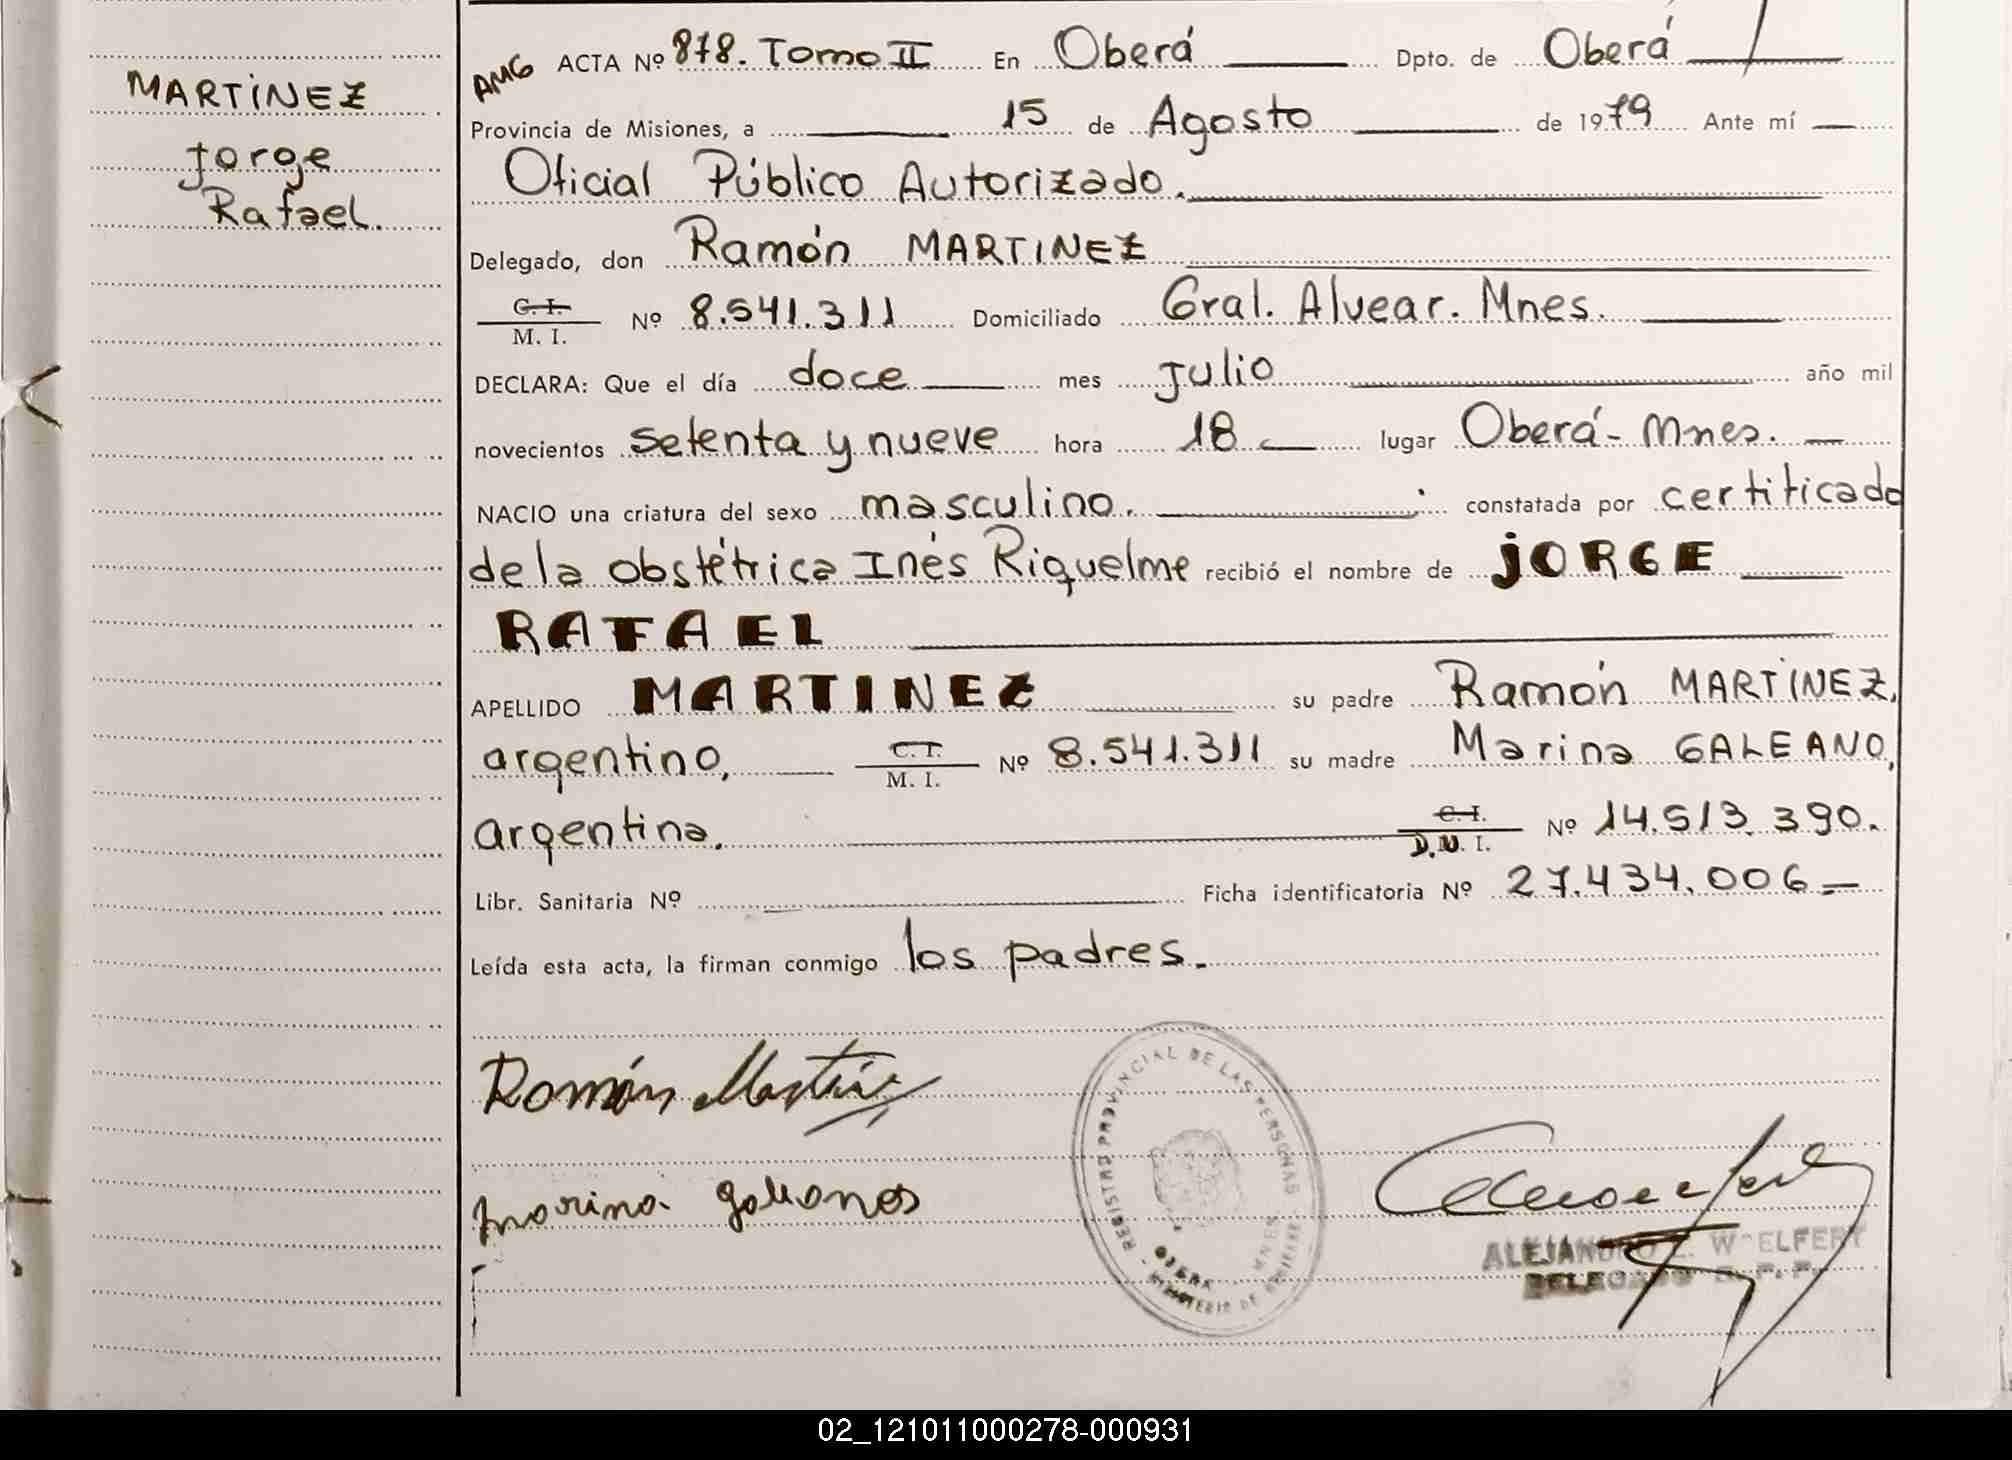 MARTINEZ
Jorge
Rafael.
AMG ACTA Nº 878. Tomo II En Oberá Dpto. de Oberá
Provincia de Misiones, a 15 de Agosto de 1979 Ante mí
Oficial Público Autorizado.
Delegado, don Ramón MARTINEZ
C. I.
M. I. Nº 8.541.311 Domiciliado Gral. Alvear. Mnes.
DECLARA: Que el día doce mes julio año mil
novecientos setenta y nueve hora 18 lugar Oberá - Mnes.
NACIO una criatura del sexo masculino. constatada por certificado
de la obstétrica Inés Riquelme recibió el nombre de JORGE
RAFAEL
APELLIDO MARTINEZ su padre Ramón MARTINEZ,
argentino, C. I. M. I. Nº 8.541.311 su madre Marina GALEANO,
argentina. C. I. D.N. I. Nº 14.513.390.
Libr. Sanitaria Nº Ficha identificatoria Nº 27.434.006
Leída esta acta, la firman conmigo los padres.
Ramón Martínez
marina galeanos
REGISTRO PROVINCIAL DE LAS PERSONAS
OBERA MNES
MINISTERIO DE
ALEJANDRO
DELEGADO R. P. P.
02_121011000278-000931